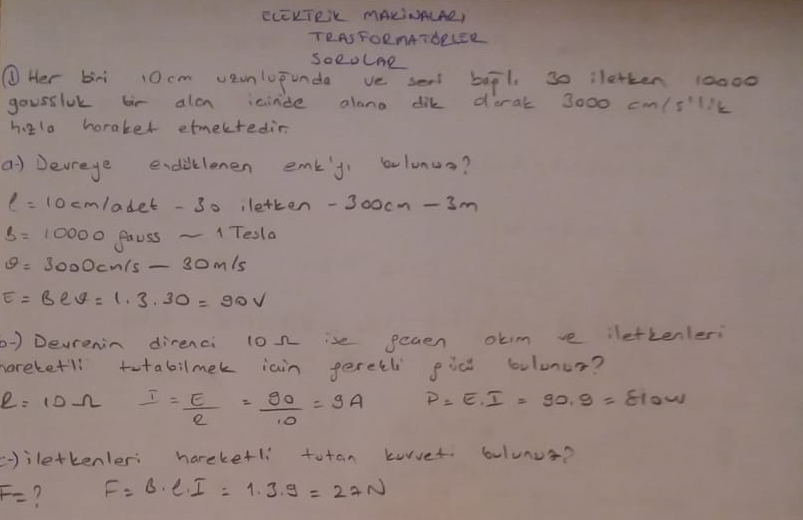 ELEKTRİK MAKİNALARI
TRASFORMATÖRLER
SORULAR
① Her biri 10 cm uzunluğunda ve seri bağlı 30 iletken 10000
gaussluk bir alan içinde alana dik olarak 3000 cm/s'lik
hızla haraket etmektedir.
a-) Devreye endüklenen emk'yı bulunuz?
l = 10cm/adet - 30 iletken - 300cm - 3m
B = 10000 gauss ~ 1 Tesla
ϑ = 3000cm/s — 30m/s
E = B l ϑ = 1.3.30 = 90V
b-) Devrenin direnci 10 Ω ise geçen akım ve iletkenleri
hareketli tutabilmek için gerekli gücü bulunuz?
R = 10 Ω I = E/R = 90/10 = 9A P = E.I = 90.9 = 810W
c-) iletkenleri hareketli tutan kuvveti bulunuz?
F = ? F = B.l.I = 1.3.9 = 27N